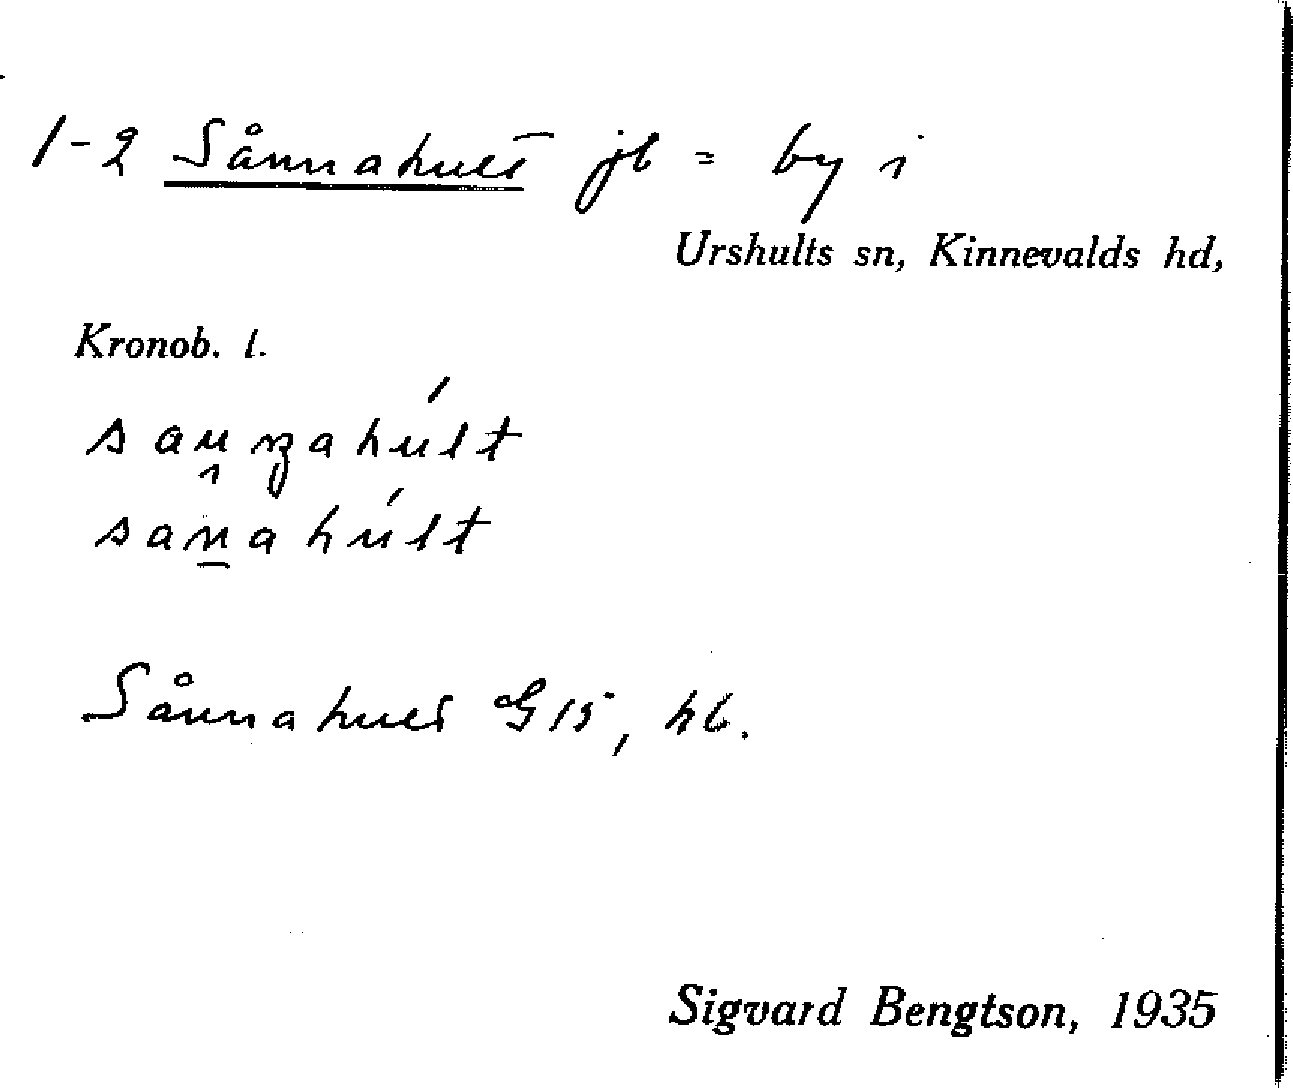 1-2 Sånnahult jb = by i
Urshults sn, Kinnevalds hd,
Kronob. l.
saunzahúlt
sanahúlt
Sånnahult G 15, hb.
Sigvard Bengtson, 1935